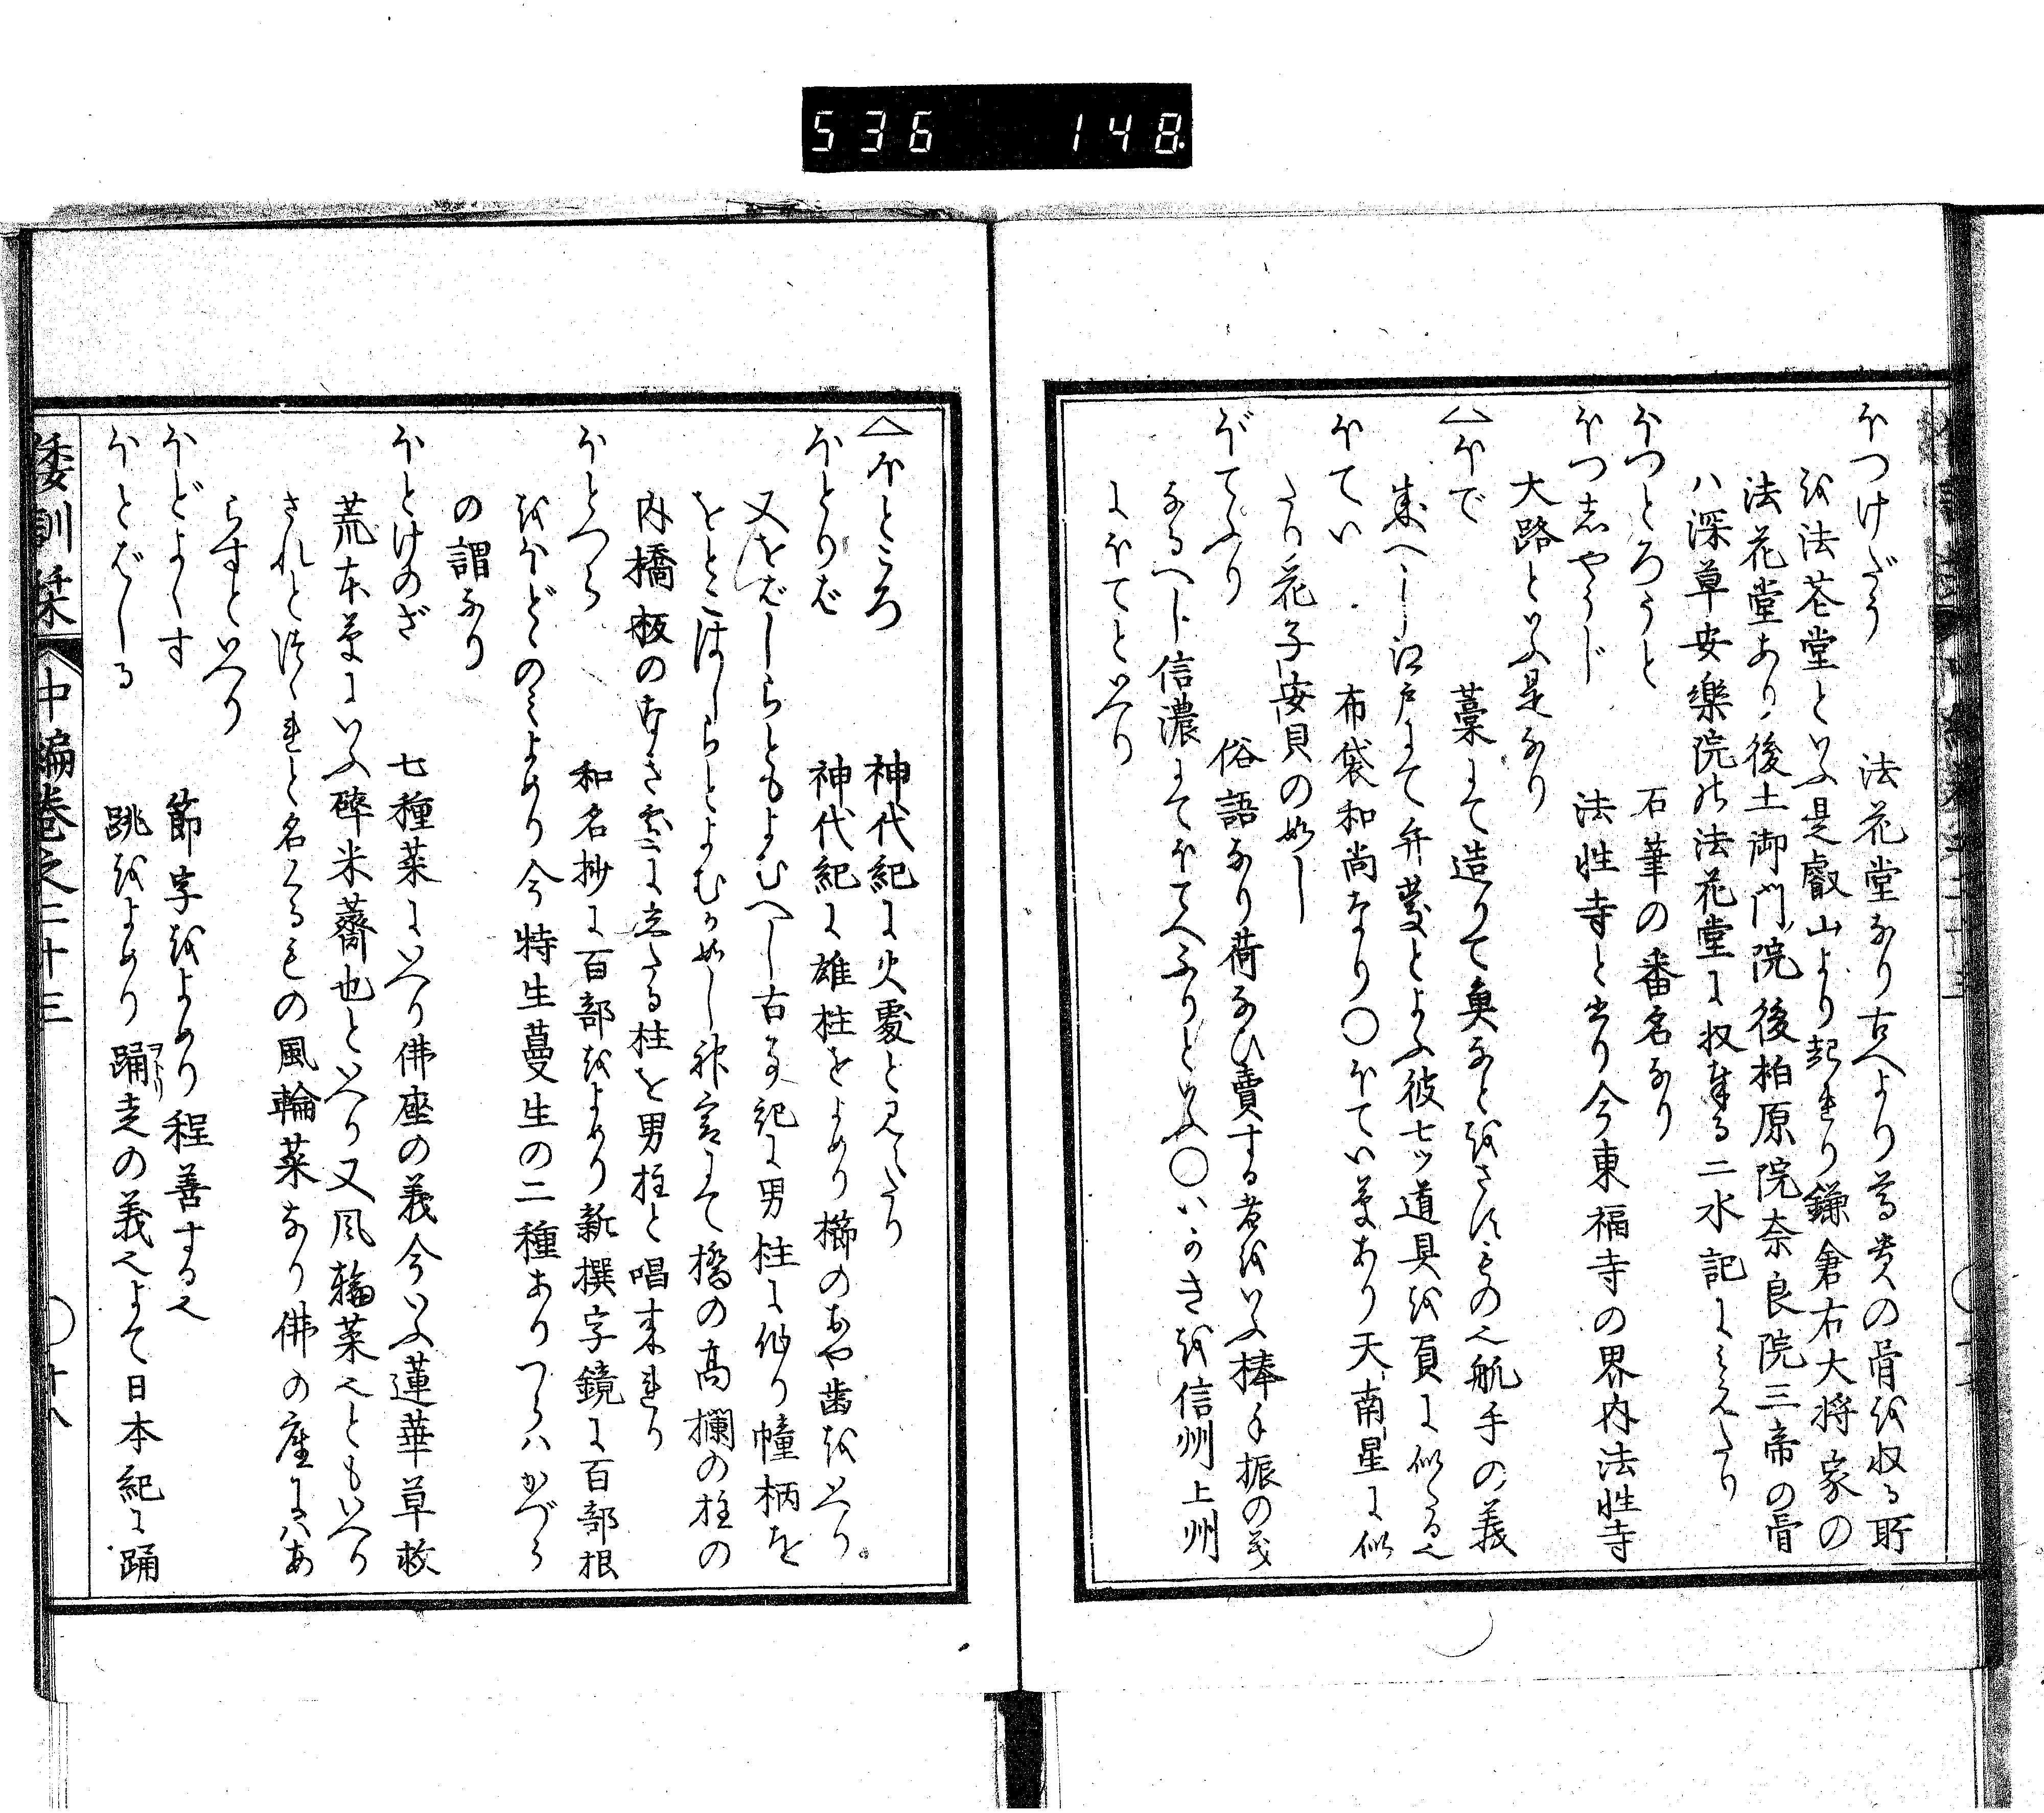 536 148
ほつけだう 法花堂なり古へより尊貴の骨を収る所
を法花堂といふ是叡山より起れり鎌倉右大将家の
法花堂あり後土御門院後柏原院奈良院三帝の骨
ハ深草安樂院の法花堂に収奉る二水記にミえたり
ほつとろうと 石筆の番名なり
ほつしやうじ 法性寺と書り今東福寺の界内法性寺
大路といふ是なり
△ほで 藁にて造りて魚なとをさすもの也帆手の義
成へし江戸にて弁慶とよふ彼七ツ道具を負に似たる也
ほてい 布袋和尚なり○ほてい草あり天南星に似
たり花子安貝の如し
ぼてふり 俗語なり荷なひ賣する者をいふ棒手振の義
なるへし信濃にてほてへふりといふ○いかきを信州上州
にほてといへり
△ほところ 神代紀に火處と見えたり
ほとりば 神代紀に雄柱をよめり櫛のおや歯をいへり
又をばしらともよむへし古事記に男柱に作り幢柄を
をとこはしらとよむか如し神宮にて橋の高欄の柱の
内橋板のなき處に立たる柱を男柱と唱来れり
ほとつら 和名抄に百部をよめり新撰字鏡に百部根
をほどのミよめり今特生蔓生の二種ありつらハかづら
の謂なり
ほとけのざ 七種菜にいへり佛座の義今いふ蓮華草救
荒本草にいふ碎米薺也といへり又風輪菜也ともいへり
されとほとけと名くるもの風輪菜なり佛の座にハあ
らすといへり
ほどよくす 節字をよめり程善する也
ほとばしる 跳をよめり踊走の義也よて日本紀に踊
ヲトリ
倭訓栞 中編巻之二十三 ○十八